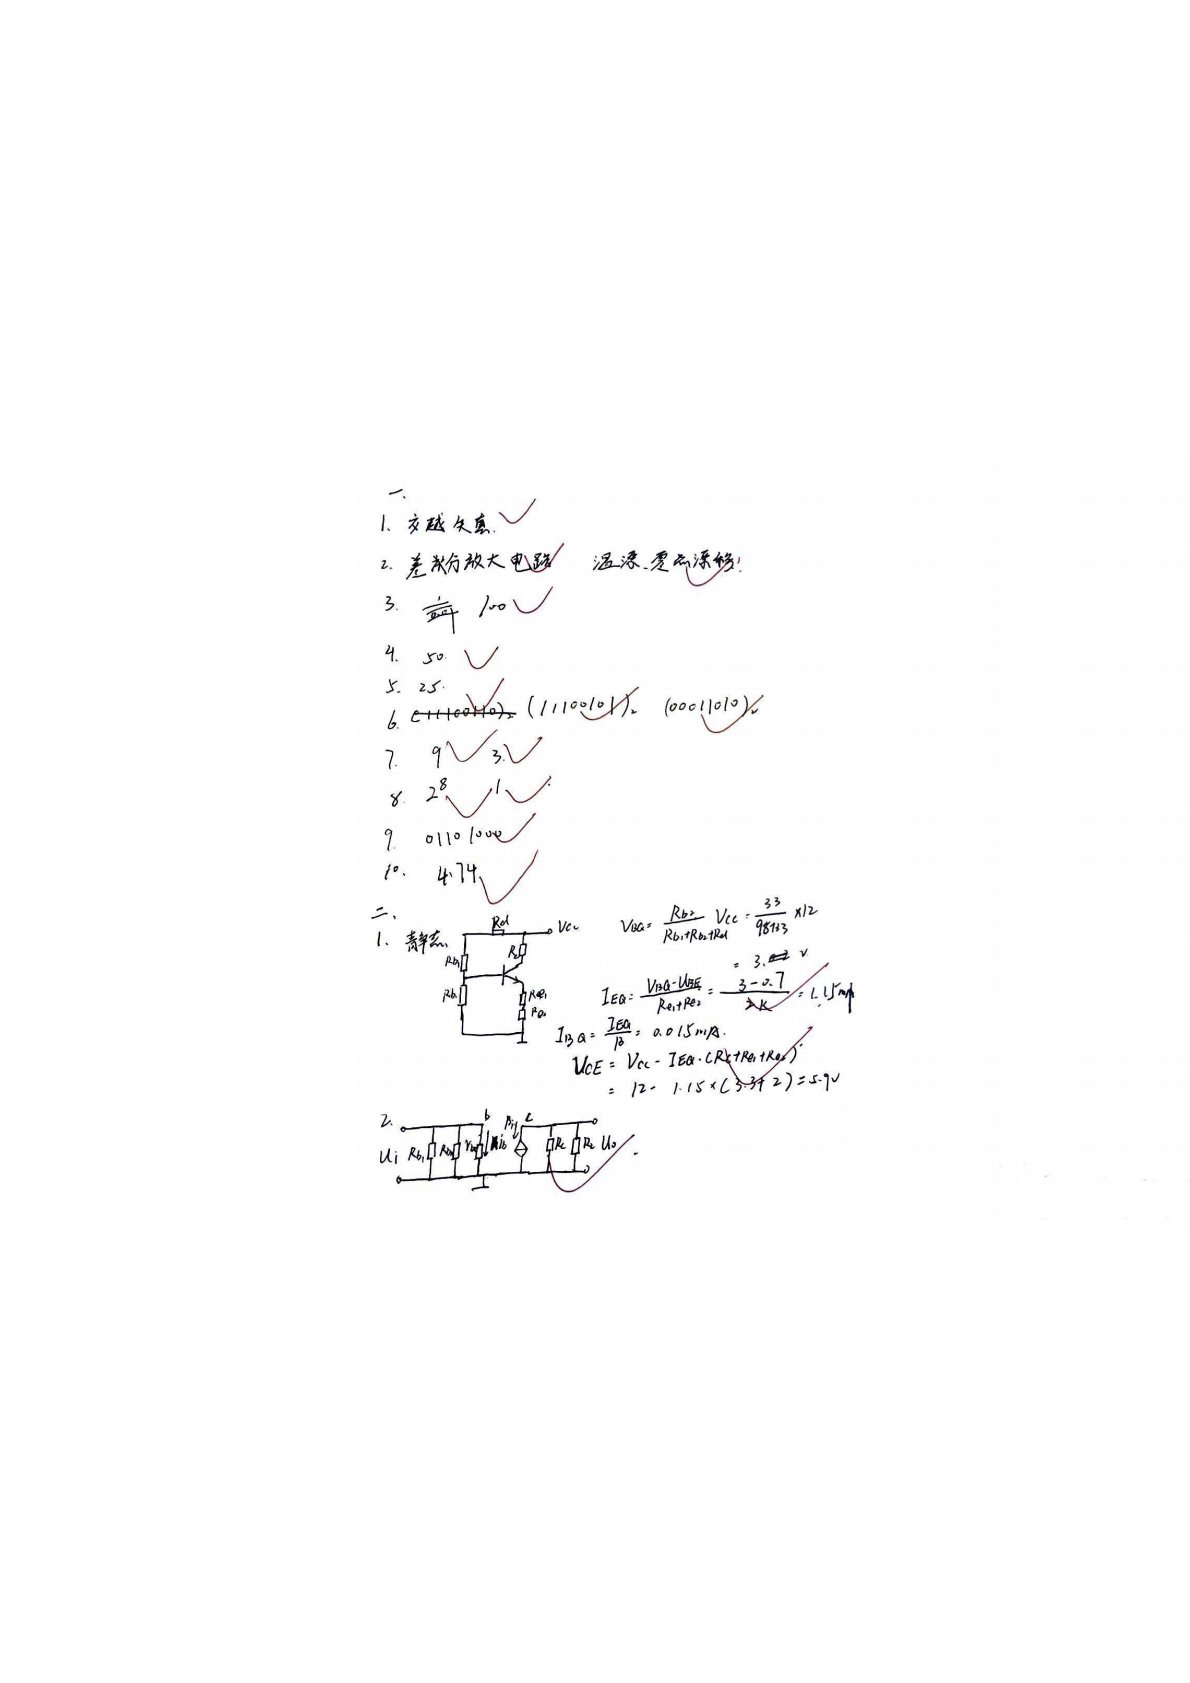 一、
1. 交越失真.
2. 差分放大电路 温漂、零点漂移.
3. 100
4. 50.
5. 25.
6. (11100110)₂ (11100101)₂ (00011010)₂
7. 9 3.
8. 2⁸ 1
9. 01101000
10. 4.74
二、
1. 静态
Rd VCC
Rb1 Rc
Rb2 Re1
Re2
VBQ = Rb2/(Rb1+Rb2+Rd) VCC = 33/(98+33) ×12
= 3. V
IEQ = (VBQ-UBE)/(Re1+Re2) = (3-0.7)/2K = 1.15mA
IBQ = IEQ/β = 0.015mA.
UCE = VCC - IEQ·(Rc+Re1+Re2)
= 12 - 1.15×(3.3+2) = 5.9V
2. b βib c
Ui Rb1 Rb2 rbe ib Rc RL Uo